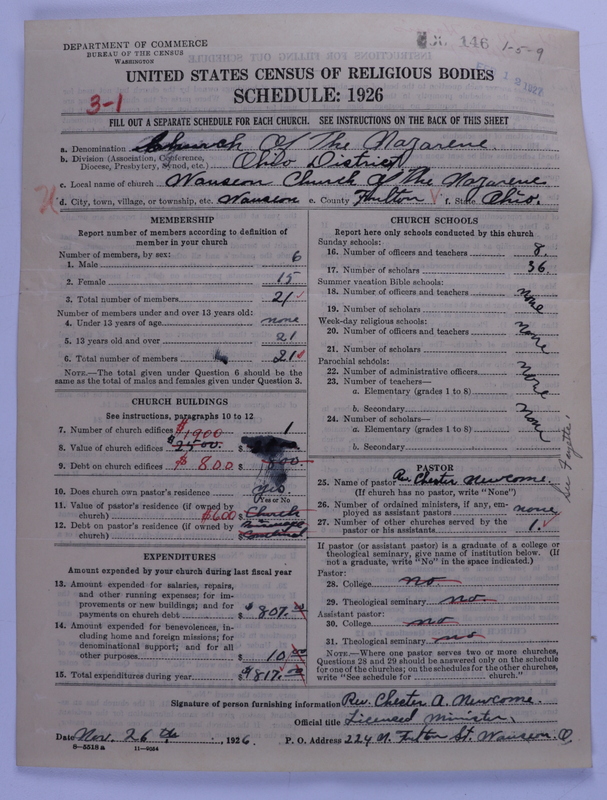 DEPARTMENT OF COMMERCE
BUREAU OF THE CENSUS
WASHINGTON
146 1-5-9
UNITED STATES CENSUS OF RELIGIOUS BODIES
SCHEDULE: 1926
3-1
FILL OUT A SEPARATE SCHEDULE FOR EACH CHURCH. SEE INSTRUCTIONS ON THE BACK OF THIS SHEET
a. Denomination Church Of The Nazarene
b. Division (Association, Conference, Diocese, Presbytery, Synod, etc.) Ohio District
c. Local name of church Wauseon Church Of The Nazarene
d. City, town, village, or township, etc. Wauseon e. County Fulton f. State Ohio.
MEMBERSHIP
Report number of members according to definition of
member in your church
Number of members, by sex:
1. Male 6
2. Female 15
3. Total number of members 21
Number of members under and over 13 years old:
4. Under 13 years of age none
5. 13 years old and over 21
6. Total number of members 21
NOTE.—The total given under Question 6 should be
same as the total of males and females given under Question 3.
CHURCH BUILDINGS
See instructions, paragraphs 10 to 12
7. Number of church edifices 1
$1900
8. Value of church edifices $2500. $
9. Debt on church edifices $800. $ 800.
10. Does church own pastor's residence yes
(Yes or No)
11. Value of pastor's residence (if owned by
church) $600 $ Church
12. Debt on pastor's residence (if owned by
church) $
EXPENDITURES
Amount expended by your church during last fiscal year
13. Amount expended for salaries, repairs,
and other running expenses; for im-
provements or new buildings; and for
payments on church debt $ 807.00
14. Amount expended for benevolences, in-
cluding home and foreign missions; for
denominational support; and for all
other purposes $ 10.00
15. Total expenditures during year $ 817.00
CHURCH SCHOOLS
Report here only schools conducted by this church
Sunday schools:
16. Number of officers and teachers 8.
17. Number of scholars 36
Summer vacation Bible schools:
18. Number of officers and teachers none
19. Number of scholars
Week-day religious schools:
20. Number of officers and teachers none
21. Number of scholars
Parochial schools:
22. Number of administrative officers none
23. Number of teachers—
a. Elementary (grades 1 to 8)
b. Secondary none
24. Number of scholars—
a. Elementary (grades 1 to 8)
b. Secondary
See Fayette,
PASTOR
25. Name of pastor Rev. Chester Newcome
(If church has no pastor, write "None")
26. Number of ordained ministers, if any, em-
ployed as assistant pastors none
27. Number of other churches served by the
pastor or his assistants 1.
If pastor (or assistant pastor) is a graduate of a college or
theological seminary, give name of institution below. (If
not a graduate, write "No" in the space indicated.)
Pastor:
28. College no
29. Theological seminary no.
Assistant pastor:
30. College no
31. Theological seminary no
NOTE.—Where one pastor serves two or more churches,
Questions 28 and 29 should be answered only on the schedule
for one of the churches; on the schedules for the other churches,
write "See schedule for ______ church."
Signature of person furnishing information Rev. Chester A. Newcome.
Official title Licensed Minister,
Date Nov. 26 th, 1926 P. O. Address 224 N. Fulton St. Wauseon. O.
8-5518 a 11-9024